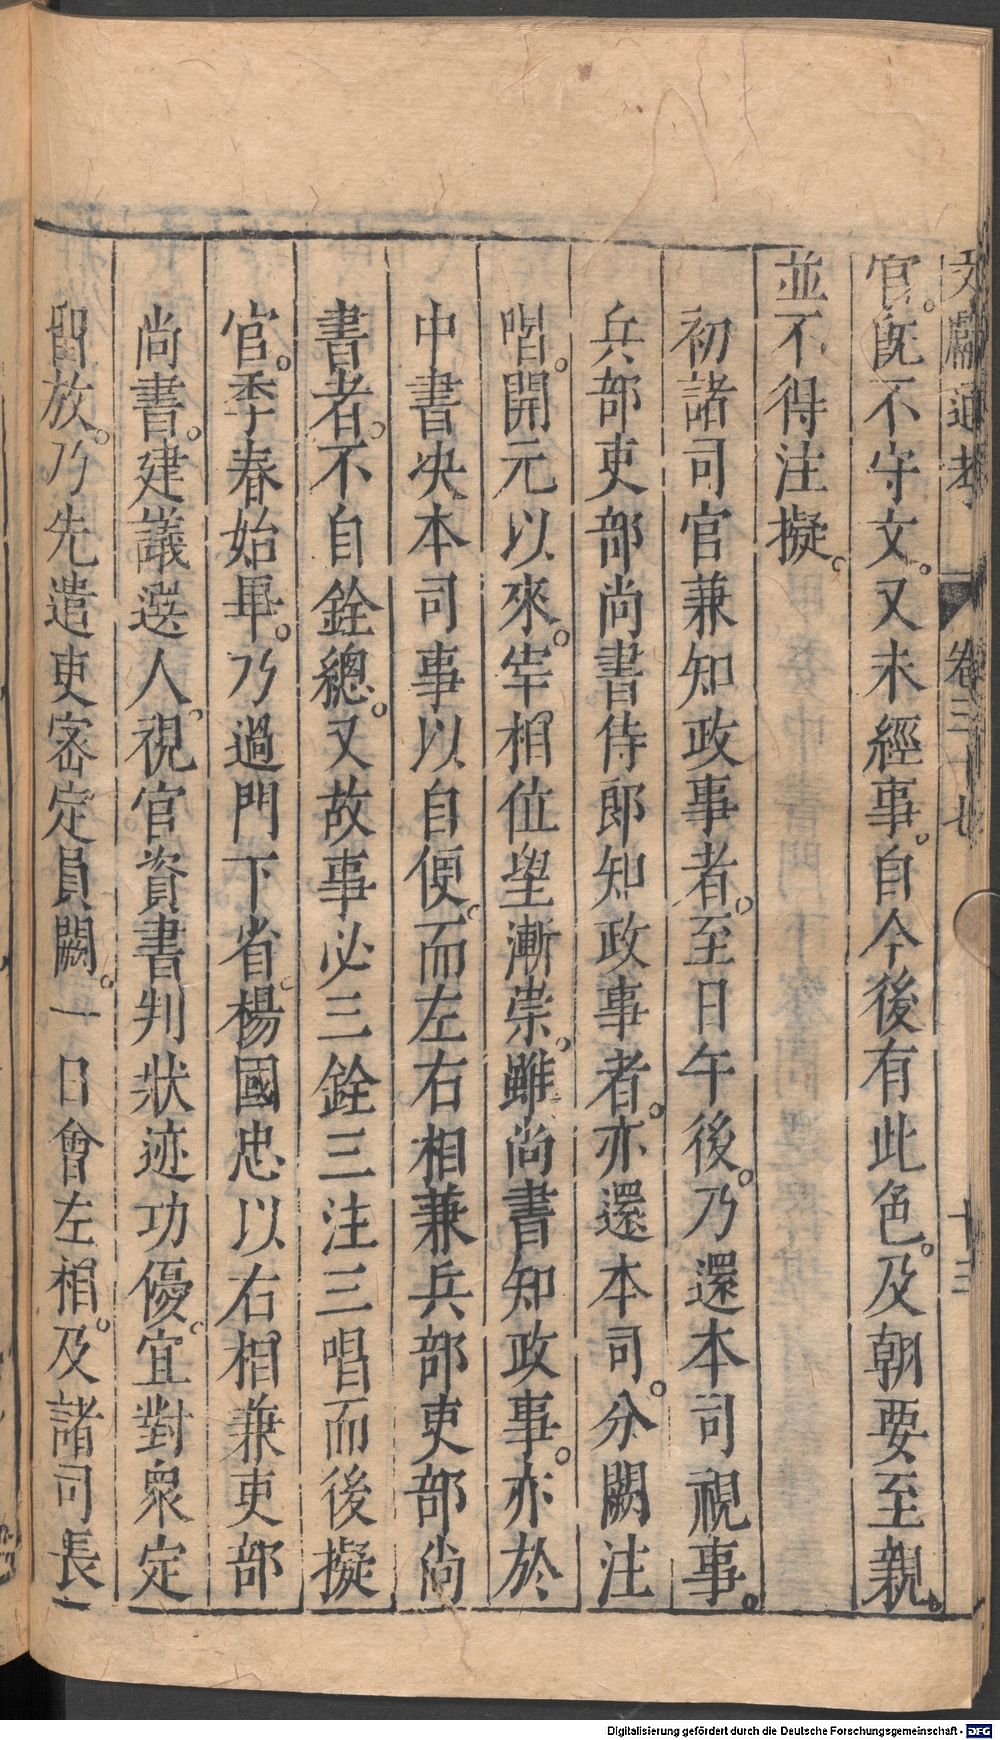 文獻通考 卷三十七 十三
官。既不守文。又未經事。自今後有此色。及朝要至親。
並不得注擬。
初諸司官兼知政事者。至日午後。乃還本司視事。
兵部吏部尚書侍郎知政事者。亦還本司。分闕注
唱。開元以來。宰相位望漸崇。雖尚書知政事。亦於
中書决本司事以自便。而左右相兼兵部吏部尚
書者。不自銓總。又故事必三銓三注三唱而後擬
官。季春始畢。乃過門下省。楊國忠以右相兼吏部
尚書。建議選人。視官資書判狀迹功優。宜對衆定
留放。乃先遣吏密定員闕。一日會左相。及諸司長
Digitalisierung gefördert durch die Deutsche Forschungsgemeinschaft - DFG